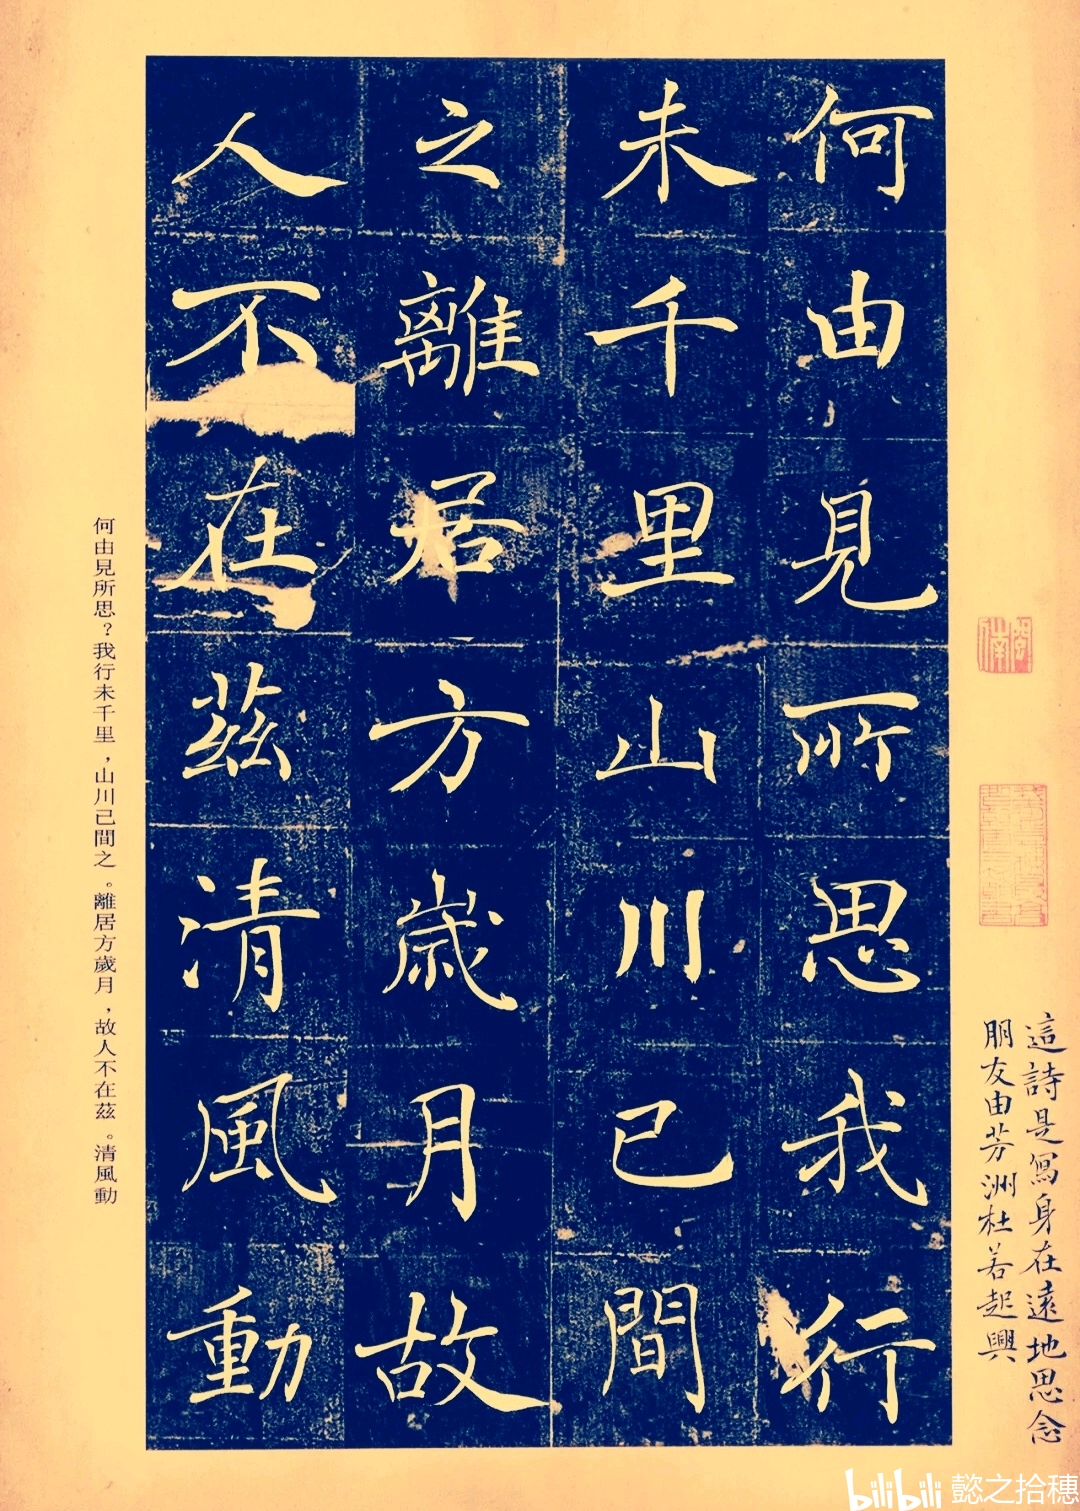 何由見所思我行
未千里山川已間
之離居方歲月故
人不在茲清風動
何由見所思？我行未千里，山川已間之。離居方歲月，故人不在茲。清風動
這詩是寫身在遠地思念
朋友由芳洲杜若起興
bilibili 懿之拾穗